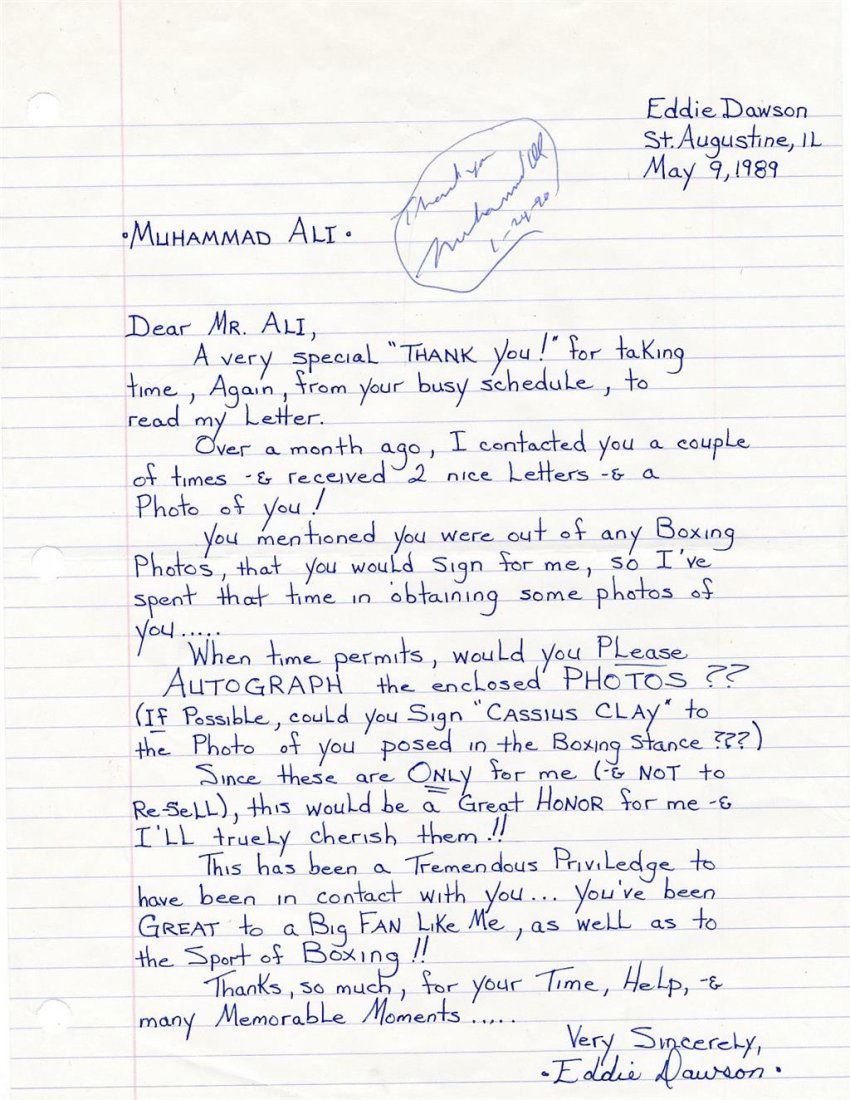 Eddie Dawson
St. Augustine, IL
May 9, 1989
Thank you
Muhammad Ali
1-24-90
•MUHAMMAD ALI•
Dear MR. ALI,
A very special "THANK you!" for taking
time, Again, from your busy schedule, to
read my Letter.
Over a month ago, I contacted you a couple
of times -& received 2 nice Letters -& a
Photo of you!
You mentioned you were out of any Boxing
Photos, that you would sign for me, so I've
spent that time in obtaining some photos of
you.....
When time permits, would you PLease
AUTOGRAPH the enclosed PHOTOS ??
(If Possible, could you Sign "CASSIUS CLAY" to
the Photo of you posed in the Boxing Stance ???)
Since these are ONLY for me (-& NOT to
Re-SeLL), this would be a Great HONOR for me -&
I'LL trueLy cherish them!!
This has been a Tremendous PriviLedge to
have been in contact with you... You've been
GREAT to a Big FAN Like Me, as well as to
the Sport of Boxing!!
Thanks, so much, for your Time, HeLp, -&
many Memorable Moments.....
Very SincereLy,
•Eddie Dawson•